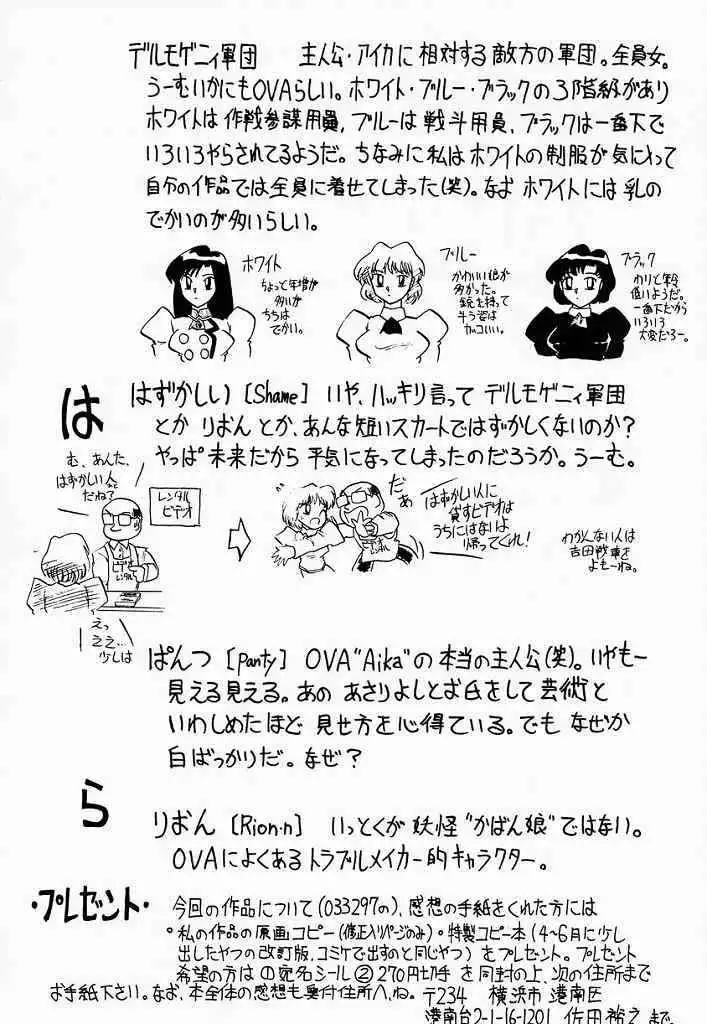 デルモゲニィ軍団 主人公・アイカに相対する敵方の軍団。全員女。
うーむいかにもOVAらしい。ホワイト・ブルー・ブラックの3階級があり
ホワイトは作戦参謀用員,ブルーは戦斗用員、ブラックは一番下で
いろいろやらされてるようだ。ちなみに私はホワイトの制服が気にいって
自分の作品では全員に着せてしまった(笑)。なお ホワイトには乳の
でかいのが多いらしい。
ホワイト
ちょっと年増が
多いが
ちちは
でかい。
ブルー
かわいい娘が
多かった。
銃を持って
斗う姿は
カッコいい。
ブラック
わりと年令
低いようだ。
一番下だから
いろいろ
大変だろー。
は
はずかしい [Shame] いや、ハッキリ言って デルモゲニィ軍団
とか りおん とか、あんな短いスカートではずかしくないのか?
やっぱ 未来だから 平気になってしまったのだろうか。うーむ。
む、あんた、
はずかしい人
だねて
レンタル
ビデオ
ビデオ
レンタル
えっ
ええ…
少しは
だぁ
はずかしい人に
貸すビデオは
うちにはないよ
帰ってくれ!
わかんない人は
吉田戦車を
よもーね。
ぱんつ [panty] OVA"Aika"の本当の主人公(笑)。いやもー
見える見える。あの あさりよしとお氏をして芸術と
いわしめたほど 見せ方を心得ている。でも なぜか
白ばっかりだ。なぜ?
ら
りおん [Rion・n] いっとくが 妖怪"かばん娘"ではない。
OVAによくあるトラブルメイカー的キャラクター。
・プレゼント・
今回の作品について(033297の)、感想の手紙をくれた方には
・私の作品の原画コピー(修正入りページのみ)・特製コピー本(4~6月に少し
出したやつの改訂版、コミケで出すのと同じやつ)をプレゼント。プレゼント
希望の方は①宛名シール②270円切手を同封の上、次の住所まで
お手紙下さい。なお、本全体の感想も奥付住所へ、ね。〒234 横浜市 港南区
港南台2-1-16-1201 佐田 裕之 まで。